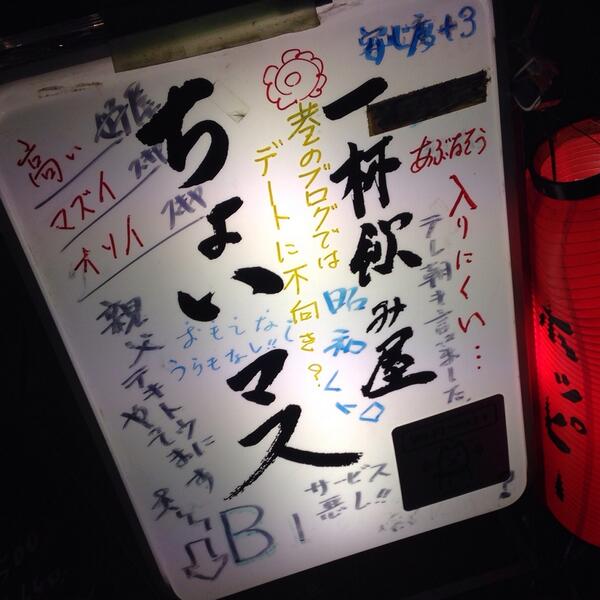 安心度+3
一杯飲み屋
ちょいマス
巷のブログでは
デートに不向き?
あぶなそう
入りにくい…
テレ朝も言いました。
高い
マズイ
オソイ
昭和レトロ
おもてなし
うらもなし!!
親父テキトウに
やってます
サービス
悪し!!
B1
ホッピー